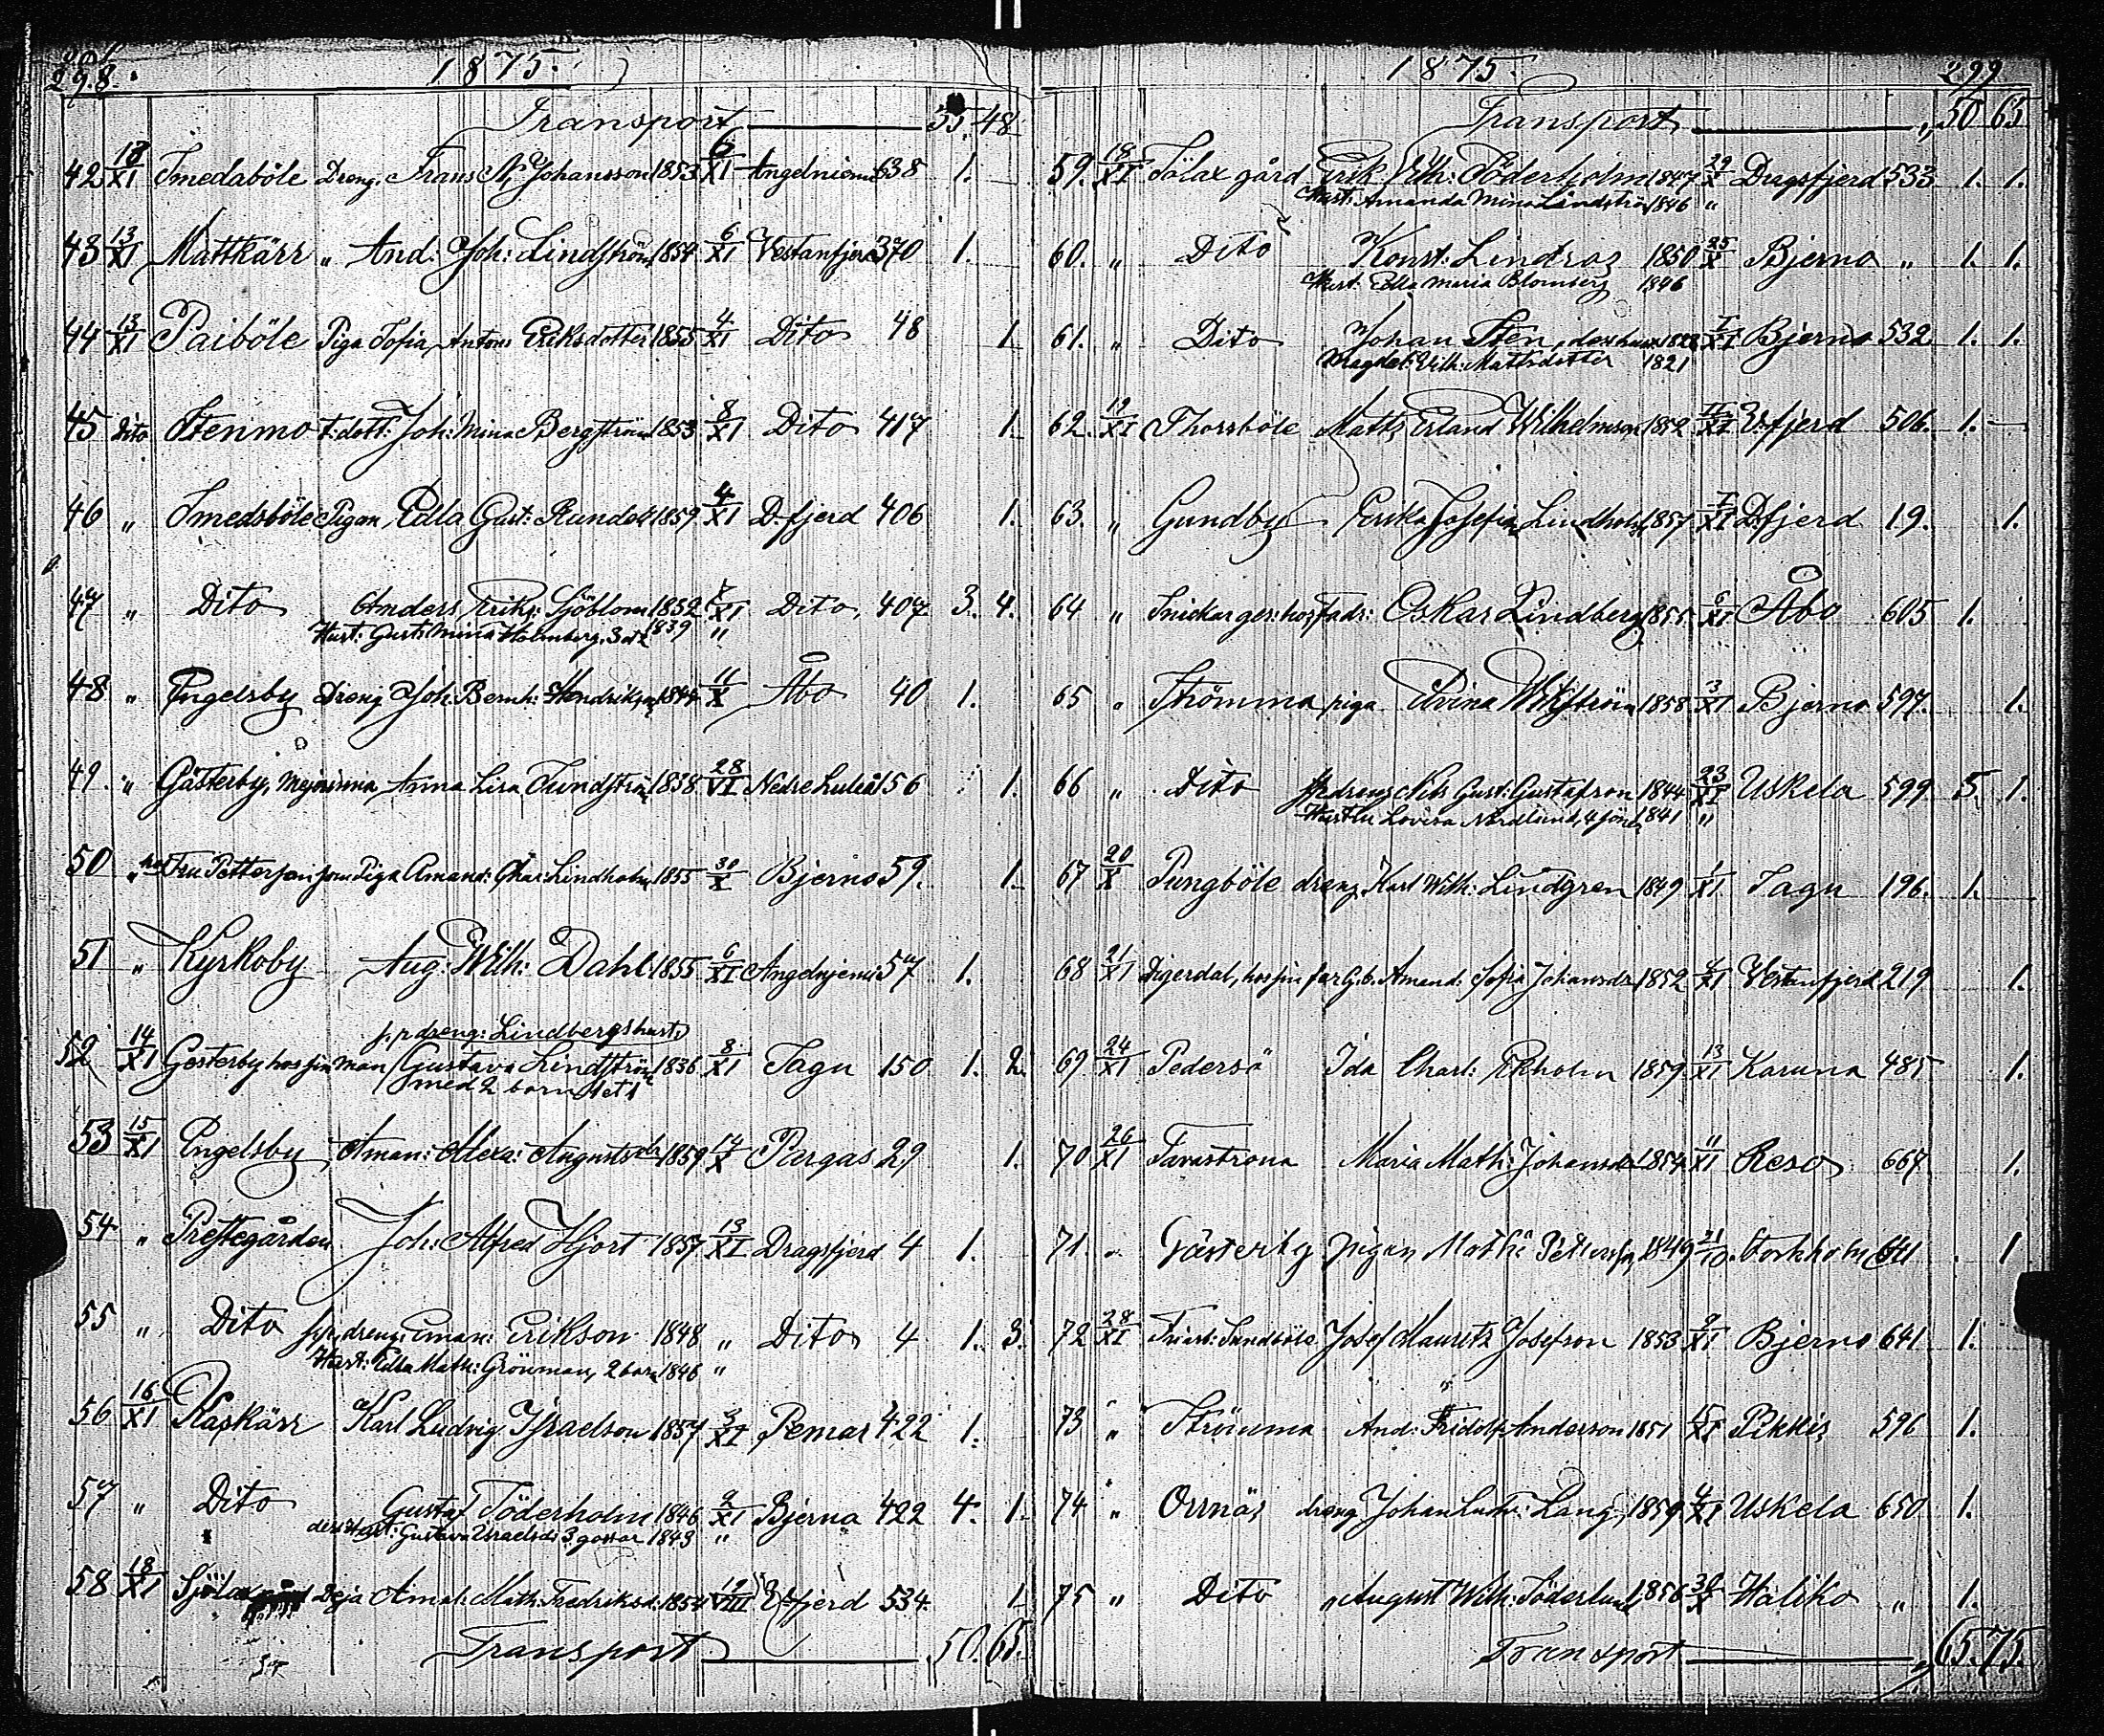 298. 1875.
Transport 35. 48
42 13/XI Smedaböle Dreng. Frans A. Johansson 1853 6/XI Angelniemi 638 1.
43 13/XI Mattkärr " And: Joh: Lindström 1854 6/XI Vestanfjerd 370 1.
44 13/XI Paiböle Piga Sofia Antons Eriksdotter 1855 4/XI Dito 48 1
45 Dito Stenmo t: dott: Joh: Mina Bergström 1853 8/XI Dito 417 1.
46 " Smedsböle Pigan, Edla Gust: Rundel 1859 4/XI D.fjerd 406 1.
47 " Dito Anders Eriks: Sjöblom 1832 7/XI Dito 407 3. 4.
Hust: Gust: Mina Holmberg, 3 1839 "
48 " Engelsby Dreng Joh. Bernh: Hendrikson 1844 11/X Åbo 40 1.
49. " Gästerby, Mejerinna Anna Lisa Sundström 1838 28/VI Nedre Luleå 156 1.
50 " hos Fru Petterson som Piga Amand: Char: Lindholm 1855 30/X Bjerno 59. 1.
51 " Kyrkoby Aug: Wilh: Dahl 1855 6/XI Angelnjemi 57 1.
f.p dreng: Lindbergs hust:
52 14/XI Gesterby hos sin man Gustava Lindström 1836 8/XI Sagu 150 1. 2.
med 2 barn
53 15/XI Engelsby Aman: Alexa: Augustsdr 1859 14/X Pargas 29 1.
54 " Prestegården Joh: Alfred Hjort 1857 13/XI Dragsfjerd 4 1.
55 " Dito f.p. dreng: Eman: Erikson 1848 " Dito 4 1. 3.
Hust: Edla Math: Grönman, 2 barn 1846 "
56 16/XI Kaskärr Karl Ludvig Israelson 1857 3/XI Pemar 422 1.
57 " Dito Gustaf Söderholm 1846 9/XI Bjerna 422 4. 1.
dess Hust: Gustava Israelsdr 3 gossar 1843 "
58 18/XI Sjölax Deja Amal: Math: Fredriksd: 1854 19/VIII V.fjerd 534. 1
Transport 50. 65.
1875. 299
Transport " 50 65
59. 18/XI Sölax gård Erik Vilh: Söderholm 1847 29/X Dragsfjerd 533 1. 1.
Hust: Amanda Mina Lindström 1846 "
60. " Dito Konst: Lindros 1850 25/X Bjerno " 1. 1.
Hust: Edla Maria Blomberg 1846
61. " Dito Johan Sten, dess hust 1828 7/XI Bjerno 532 1. 1.
Magdal: Vilh: Mattsdotter 1821
62. 19/XI Thorsböle Matts Erland Wilhelmson 1852 11/XI V.fjerd 506. 1.
63. " Gundby Erika Josefin Lindholm 1857 7/XI D.fjerd 19. 1.
64 " Snickar ges: hos Fadr: Oskar Lindberg 1855 6/XI Åbo 605 1.
65 " Strömma piga Elvina Wikström 1858 3/XI Bjerno 597. 1.
66 " Dito fp. dreng Nils Gust: Gustafson 1844 23/XI Uskela 599 5. 1.
Hustru Lovisa Nordlund, 4 söner 1841 "
67 20/X Pungböle dreng, Karl Wilh: Lindgren 1849 1/XI Sagu 196. 1.
68 21/XI Digerdal, hos sin far G.b. Amand: Sofia Johansdr 1852 4/XI Vestanfjerd 219 1.
69 24/XI Pedersö Ida Charl: Ekholm 1859. 13/XI Karuna 485 1.
70 26/XI Tavastrona Maria Math: Johansdr 1854 11/XI Reso 667 1.
71. " Gästerby pigan Math: Pettersson 1849 21/10. Stockholm 641 1
72 28/XI Sundböle Josef Mauritz Josefson 1853 9/XI Bjerno 641 1.
73 " Strömma And: Fridolf Anderson 1851 15/XI Pikkis 596 1.
74 " Orrnäs dreng Johan Ludv: Lang, 1859 4/XI Uskela 650 1.
75 " Dito " August Wilh: Söderlund 1856 30/X Haliko " 1.
Transport " 65. 75.